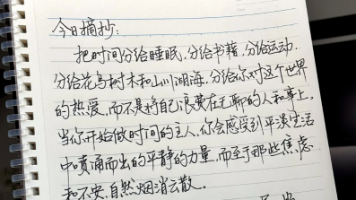 今日摘抄:
把时间分给睡眠,分给书籍,分给运动.
分给花鸟树木和山川湖海,分给你对这个世界
的热爱,而不是将自己浪费在无聊的人和事上.
当你开始做时间的主人,你会感受到平淡生活
中喷涌而出的平静的力量,而至于那些焦虑
和不安,自然烟消云散.